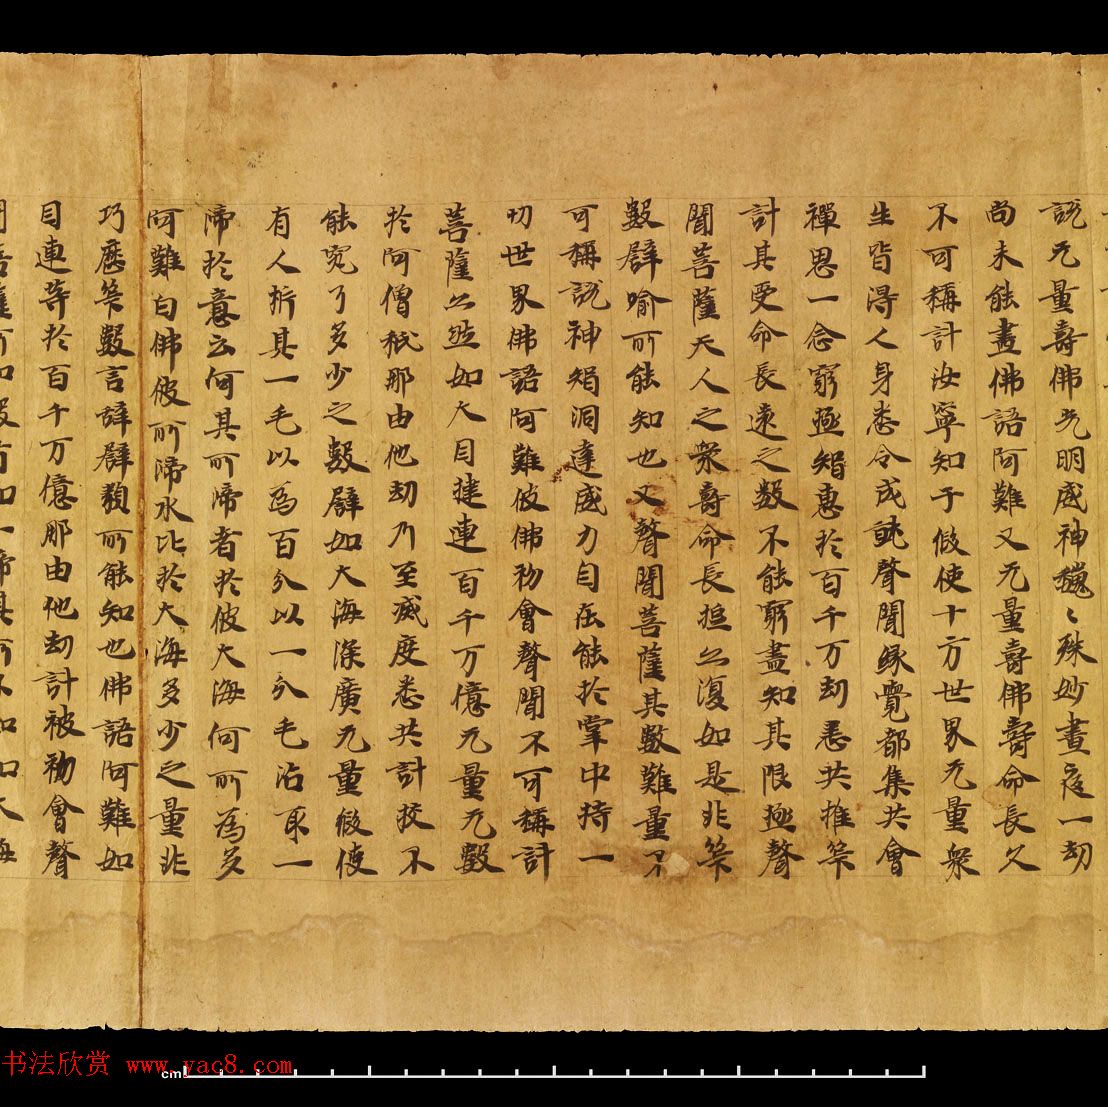 說无量壽佛光明威神巍〻殊妙晝夜一劫
尚未能盡佛語阿難又无量壽佛壽命長久
不可稱計汝寧知乎假使十方世界无量衆
生皆得人身悉令成就聲聞緣覺都集共會
禪思一念窮極智惠於百千万劫悉共推筭
計其受命長遠之數不能窮盡知其限極聲
聞菩薩天人之衆壽命長短亦復如是非筭
數譬喻所能知也又聲聞菩薩其數難量不
可稱說神智洞達威力自在能於掌中持一
切世界佛語阿難彼佛初會聲聞不可稱計
菩薩亦然如大目揵連百千万億无量无數
於阿僧祇那由他劫乃至滅度悉共計挍不
能究了多少之數譬如大海深廣无量假使
有人析其一毛以為百分以一分毛沾取一
渧於意云何其所渧者於彼大海何所為多
阿難白佛彼所渧水比於大海多少之量非
巧歷筭數言辭譬類所能知也佛語阿難如
目連等於百千万億那由他劫計彼初會聲
聞菩薩所知數者如一渧其所不知如大海
书法欣赏 www.yac8.com
cm